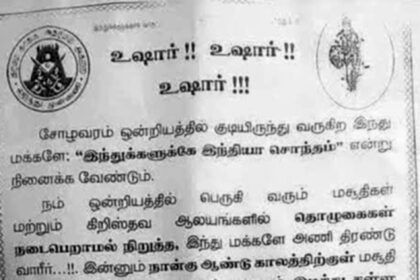 உஷார் !! உஷார் !!
உஷார் !!!
சோழவரம் ஒன்றியத்தில் குடியிருந்து வருகிற இந்து
மக்களே: “இந்துக்களுக்கே இந்தியா சொந்தம்” என்று
நினைக்க வேண்டும்.
நம் ஒன்றியத்தில் பெருகி வரும் மசூதிகள்
மற்றும் கிறிஸ்தவ ஆலயங்களில் தொழுகைகள்
நடைபெறாமல் நிறுத்த, இந்து மக்களே அணி திரண்டு
வாரீர்...!!. இன்னும் நான்கு ஆண்டு காலத்திற்குள் மசூதி